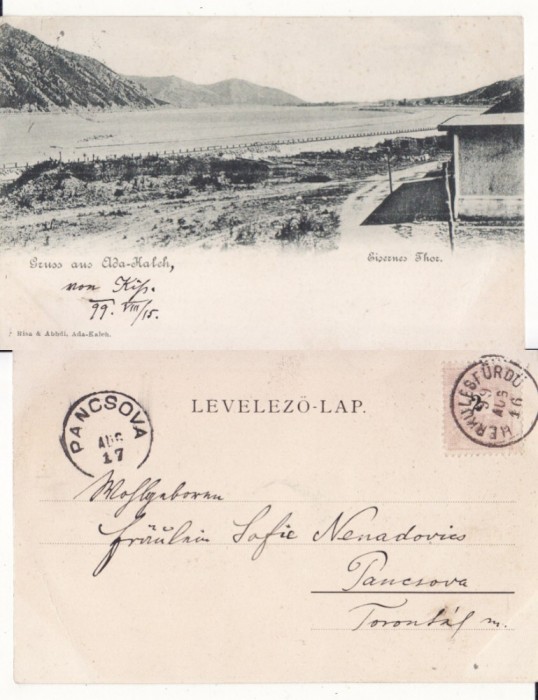 Gruss aus Ada-Kaleh,
Eisernes Thor.
von Kiss.
99. VIII/15.
Riza & Ahbûl, Ada-Kaleh.
LEVELEZÖ-LAP.
PANCSOVA
AUG
17
HERKULESFÜRDÖ
99
AUG
16
Wohlgeboren
Fräulein Sofie Nenadovics
Pancsova
Torontál m.